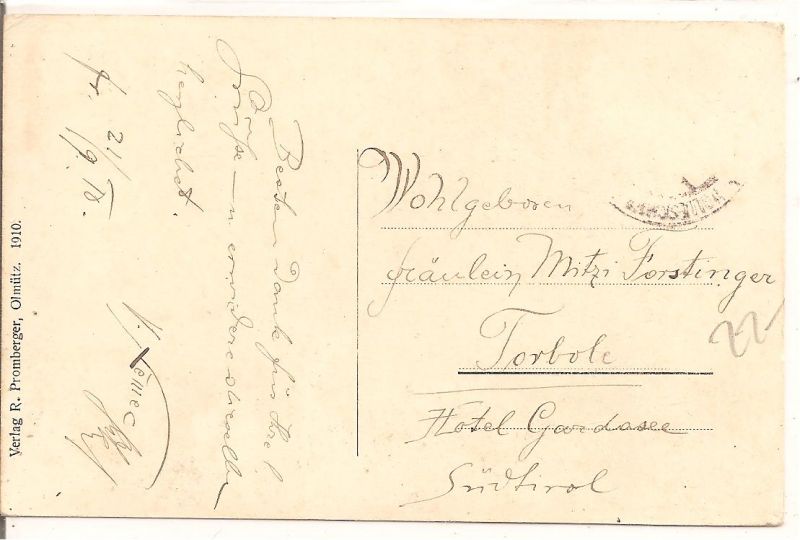 Besten Dank für Ihre l.
Grüße – u erwidere dieselben
herzlichst.
21/9 10.
Nemec
Verlag R. Promberger, Olmütz. 1910.
Wohlgeboren
Fräulein Mitzi Forstinger
Torbole
Hotel Gardasee
Südtirol
22